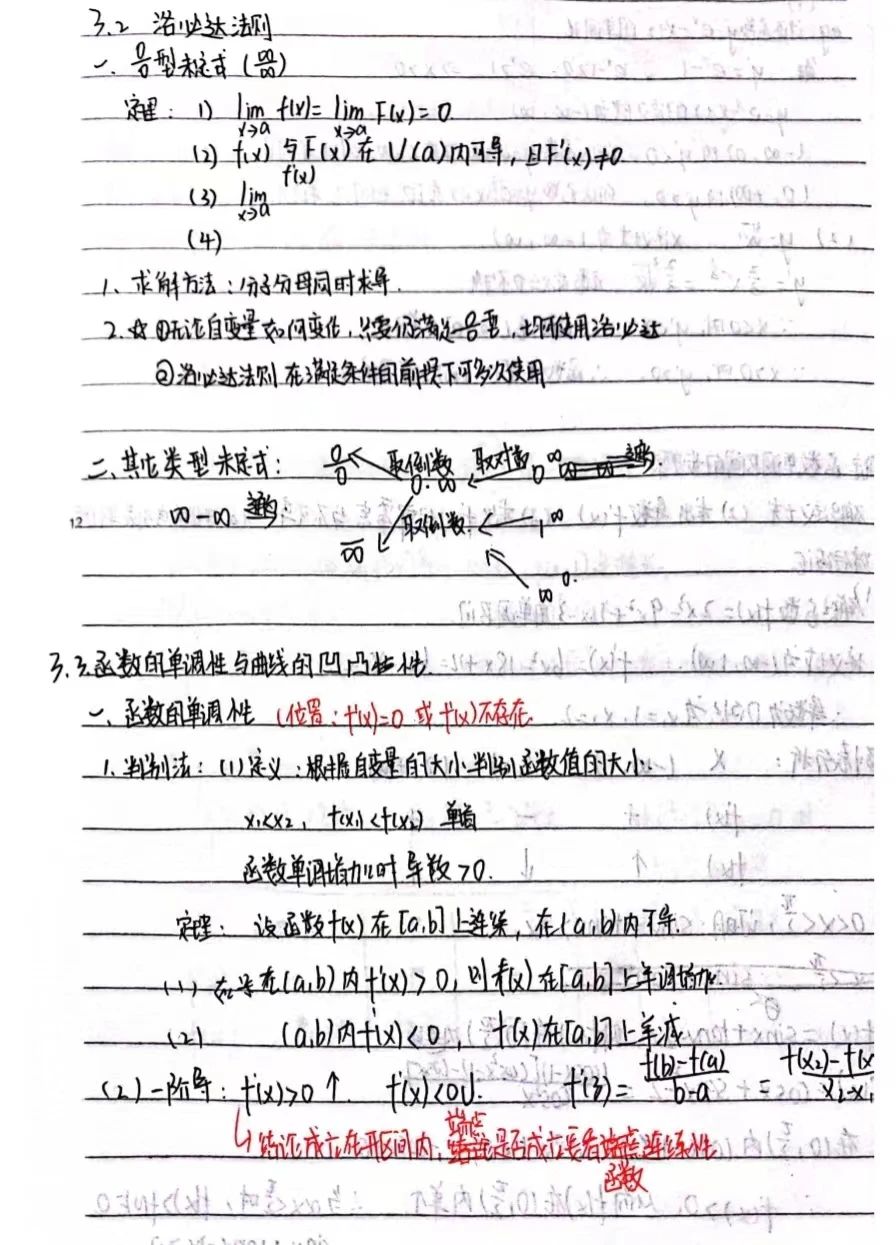 3.2 洛必达法则
一、0/0型未定式 (∞/∞)
定理: 1) lim x→a f(x) = lim x→a F(x) = 0
(2) f(x) 与 F(x) 在 U(a) 内可导, 且F'(x)≠0
(3) lim x→a f'(x)
(4)
1、求解方法: 分子分母同时求导.
2. ☆ ①无论自变量如何变化, 只要仍满足 0/0 型, 均可使用洛必达
②洛必达法则 在满足条件的前提下可多次使用
二、其它类型未定式: 0/0 取倒数 0·∞ 取对数 0 ∞
∞-∞ 通分 ∞ 取倒数. 1^∞
∞^0
3.3.函数的单调性与曲线的凹凸性
一、函数的单调性 (位置: f'(x)=0 或 f'(x)不存在.
1、判别法: (1)定义: 根据自变量的大小判别函数值的大小
x₁<x₂, f(x₁)<f(x₂) 单增
函数单调增加时 导数>0.
定理: 设函数f(x) 在[a,b]上连续, 在(a,b)内可导.
(1) 若在(a,b)内f'(x)>0, 则f(x)在[a,b]上单调增加.
(2) (a,b)内f'(x)<0, f(x)在[a,b]上单减
(2) 一阶导: f'(x)>0 ↑ f'(x)<0↓. f'(ξ) = f(b)-f(a)/b-a = f(x₂)-f(x/x₂-x₁
↳ 结论成立在开区间内, 端点是否成立要看函数端点连续性